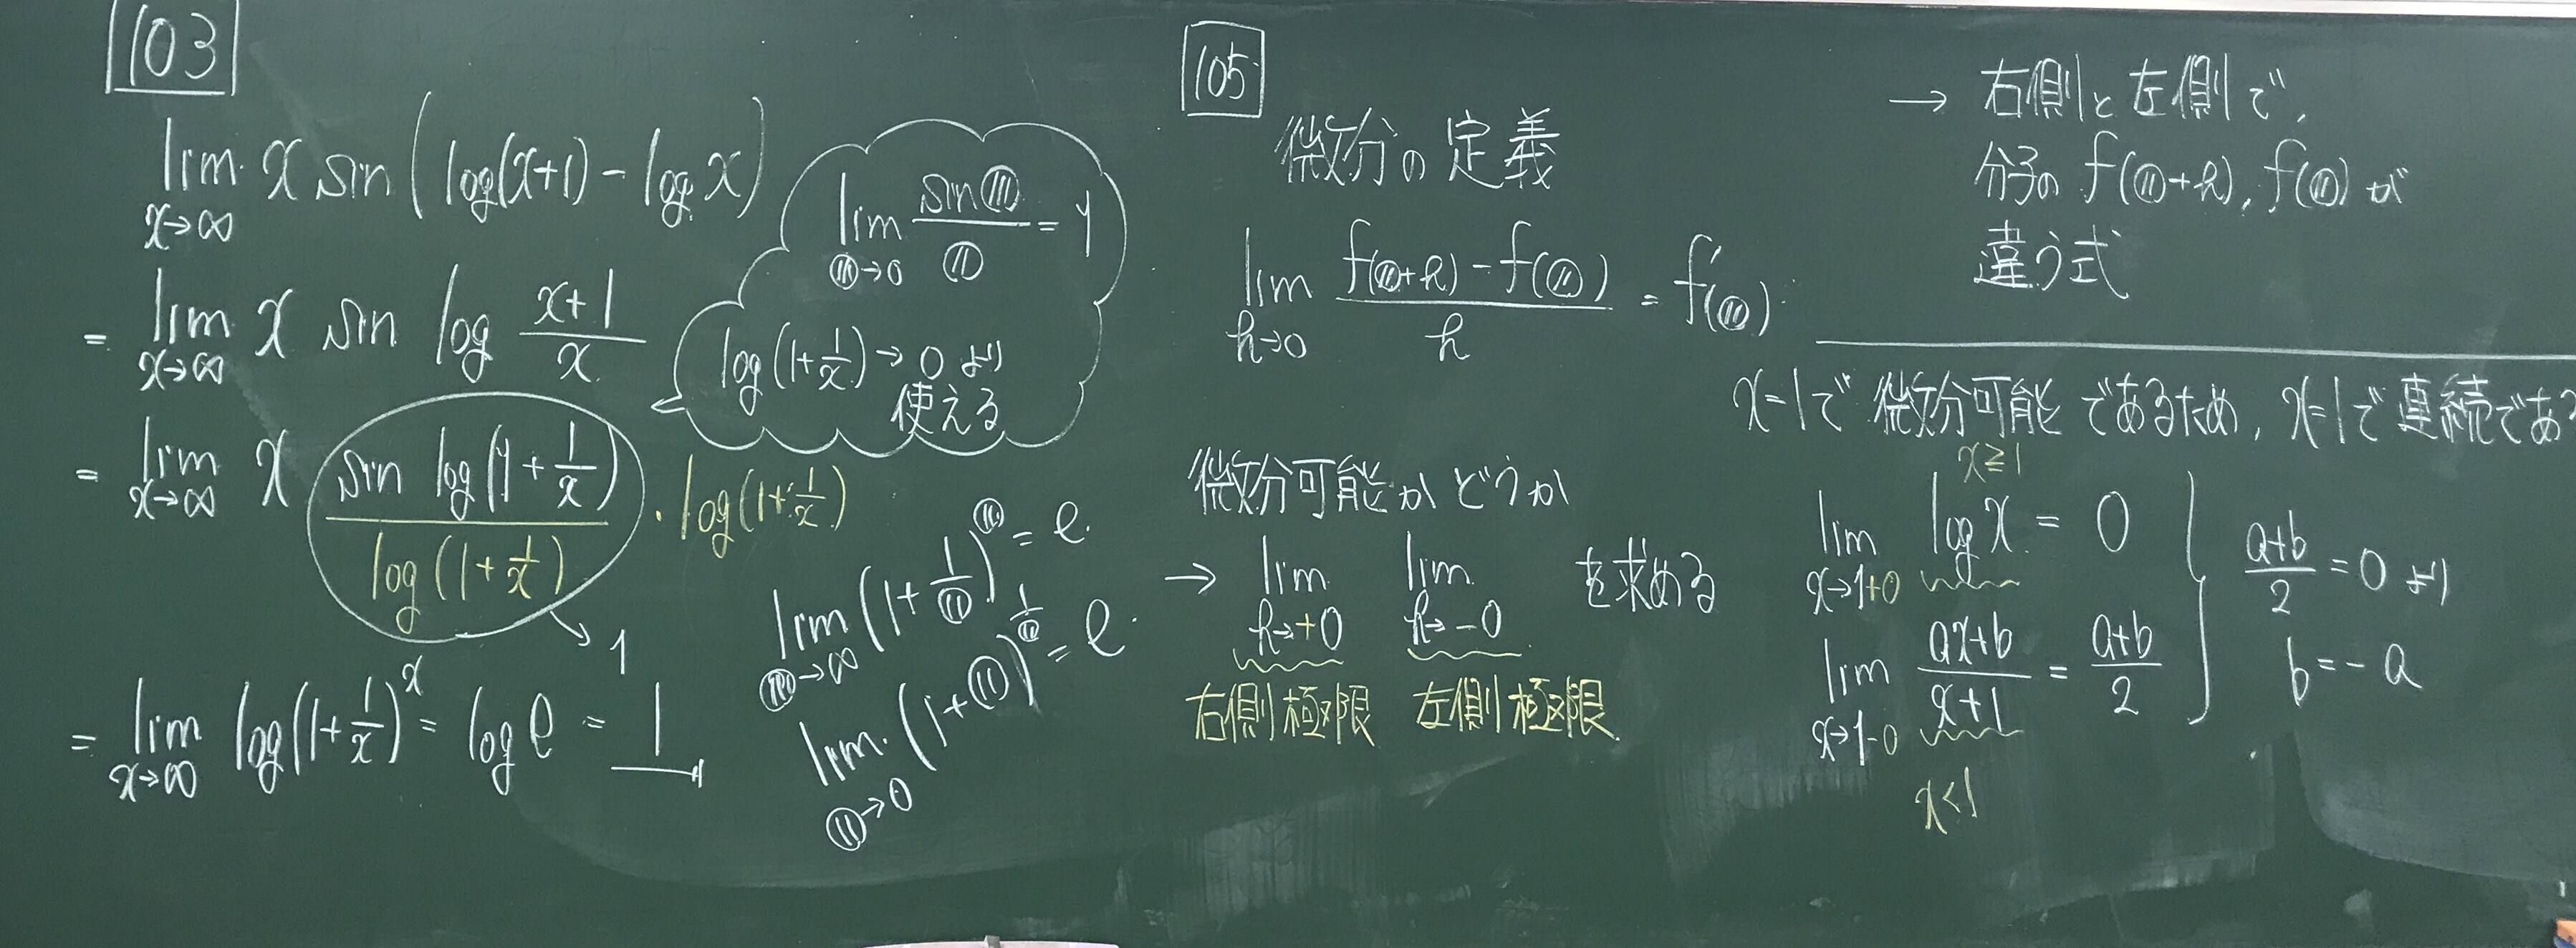 103
lim x→∞ x sin (log(x+1) - log x)
= lim x→∞ x sin log (x+1)/x
= lim x→∞ x (sin log(1+1/x))/(log(1+1/x)) · log(1+1/x)
→ 1
= lim x→∞ log(1+1/x)^x = log e = 1
lim ◯→0 sin◯/◯ = 1
log(1+1/x)→0 より
使える
lim ◯→∞ (1+1/◯)^◯ = e.
lim ◯→0 (1+◯)^(1/◯) = e.
105
微分の定義
lim h→0 (f(◯+h)-f(◯))/h = f'(◯)
微分可能かどうか
→ lim h→+0 lim h→-0 を求める
右側極限 左側極限
→ 右側と左側で,
分子の f(◯+h), f(◯) が
違う式
x=1で微分可能であるため, x=1で連続であ
x≧1
lim x→1+0 log x = 0
lim x→1-0 (ax+b)/(x+1) = (a+b)/2
x<1
(a+b)/2 = 0 より
b = -a